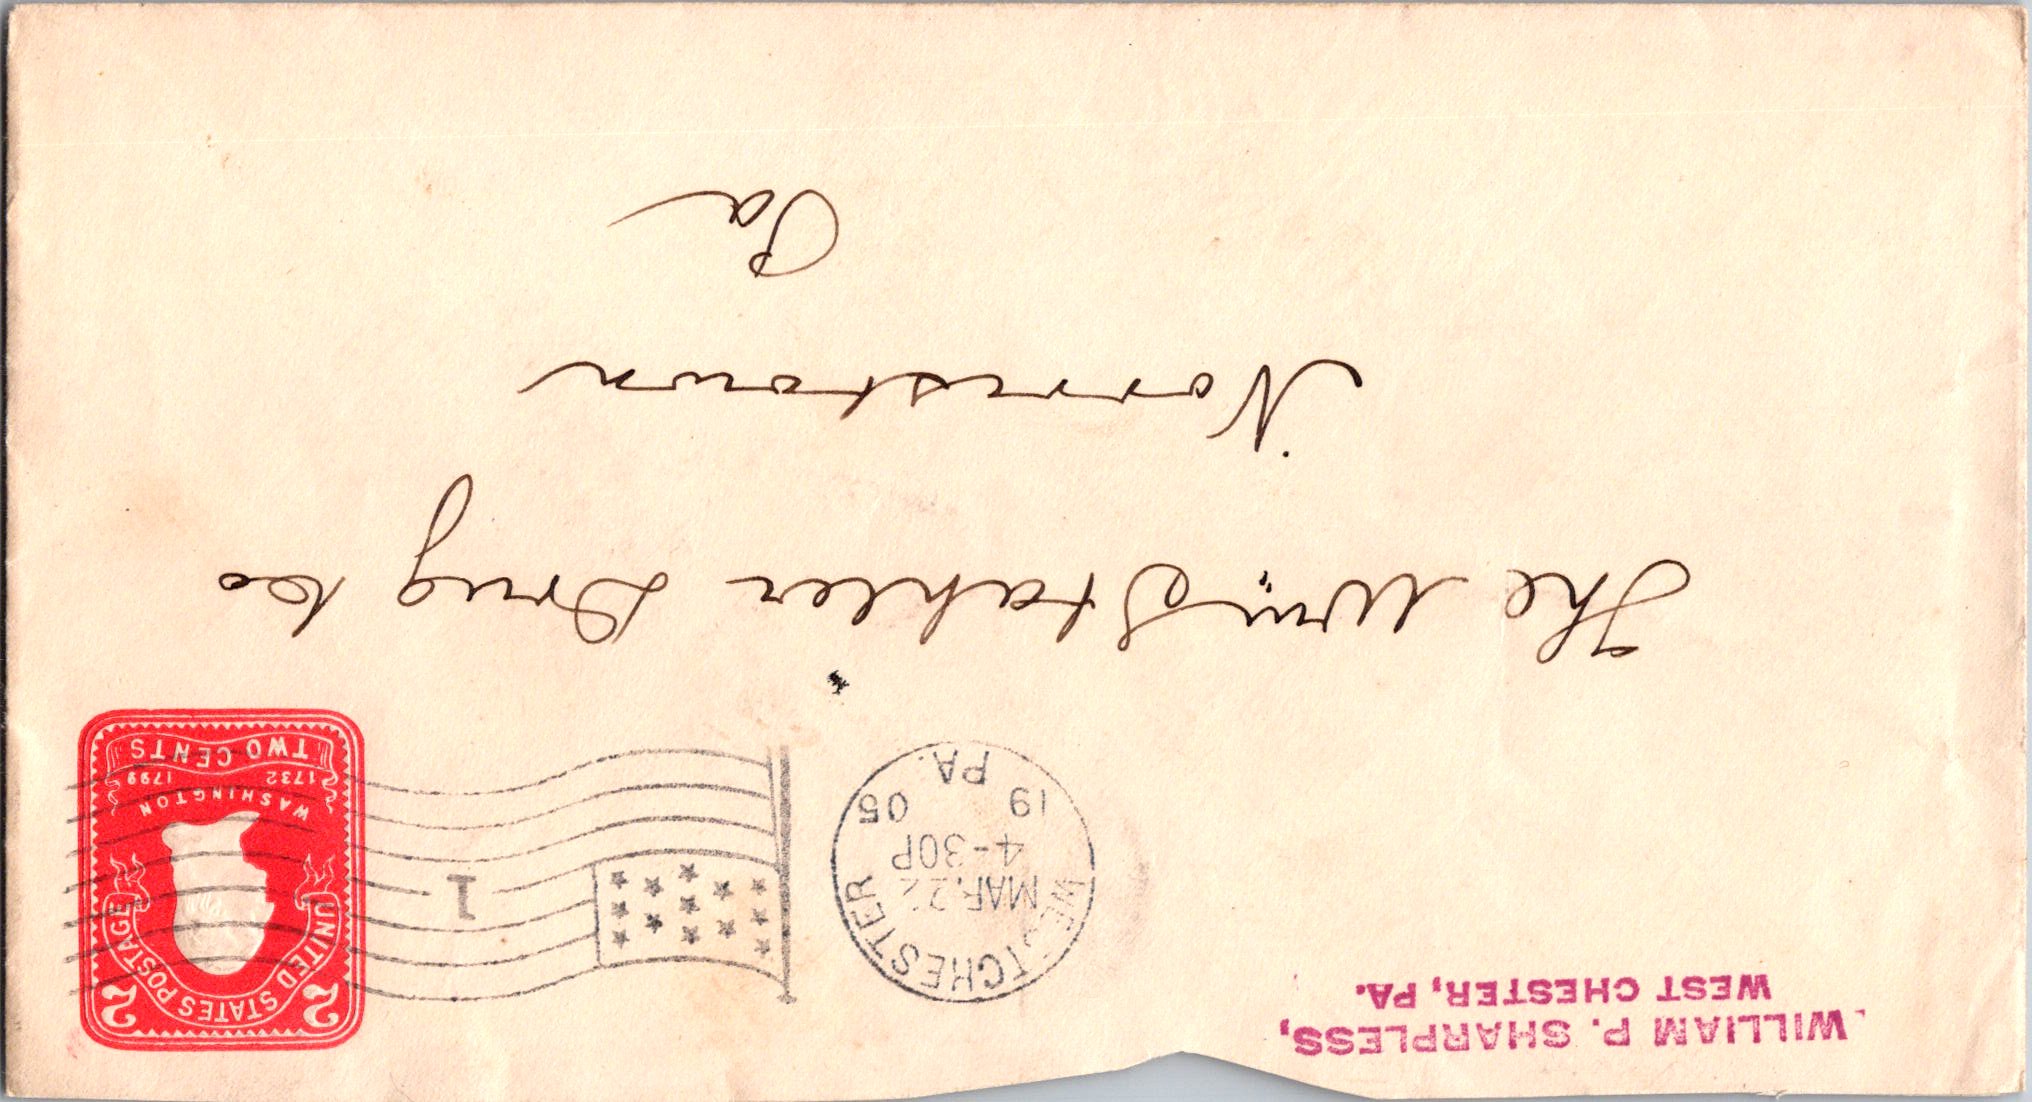 WILLIAM P. SHARPLESS,
WEST CHESTER, PA.
WEST CHESTER
MAR 22
4-30P
19 05
PA.
1
2 2
UNITED STATES POSTAGE
WASHINGTON
1732 1799
TWO CENTS
The Wm Stahler Drug Co
Norristown
Pa